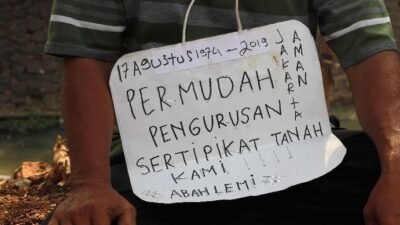 17 AGUSTUS 1974 - 2019
PERMUDAH
PENGURUSAN
SERTIPIKAT TANAH
KAMI !!!!
<< ABAH LEMI >>
JAKARTA
AMANNT